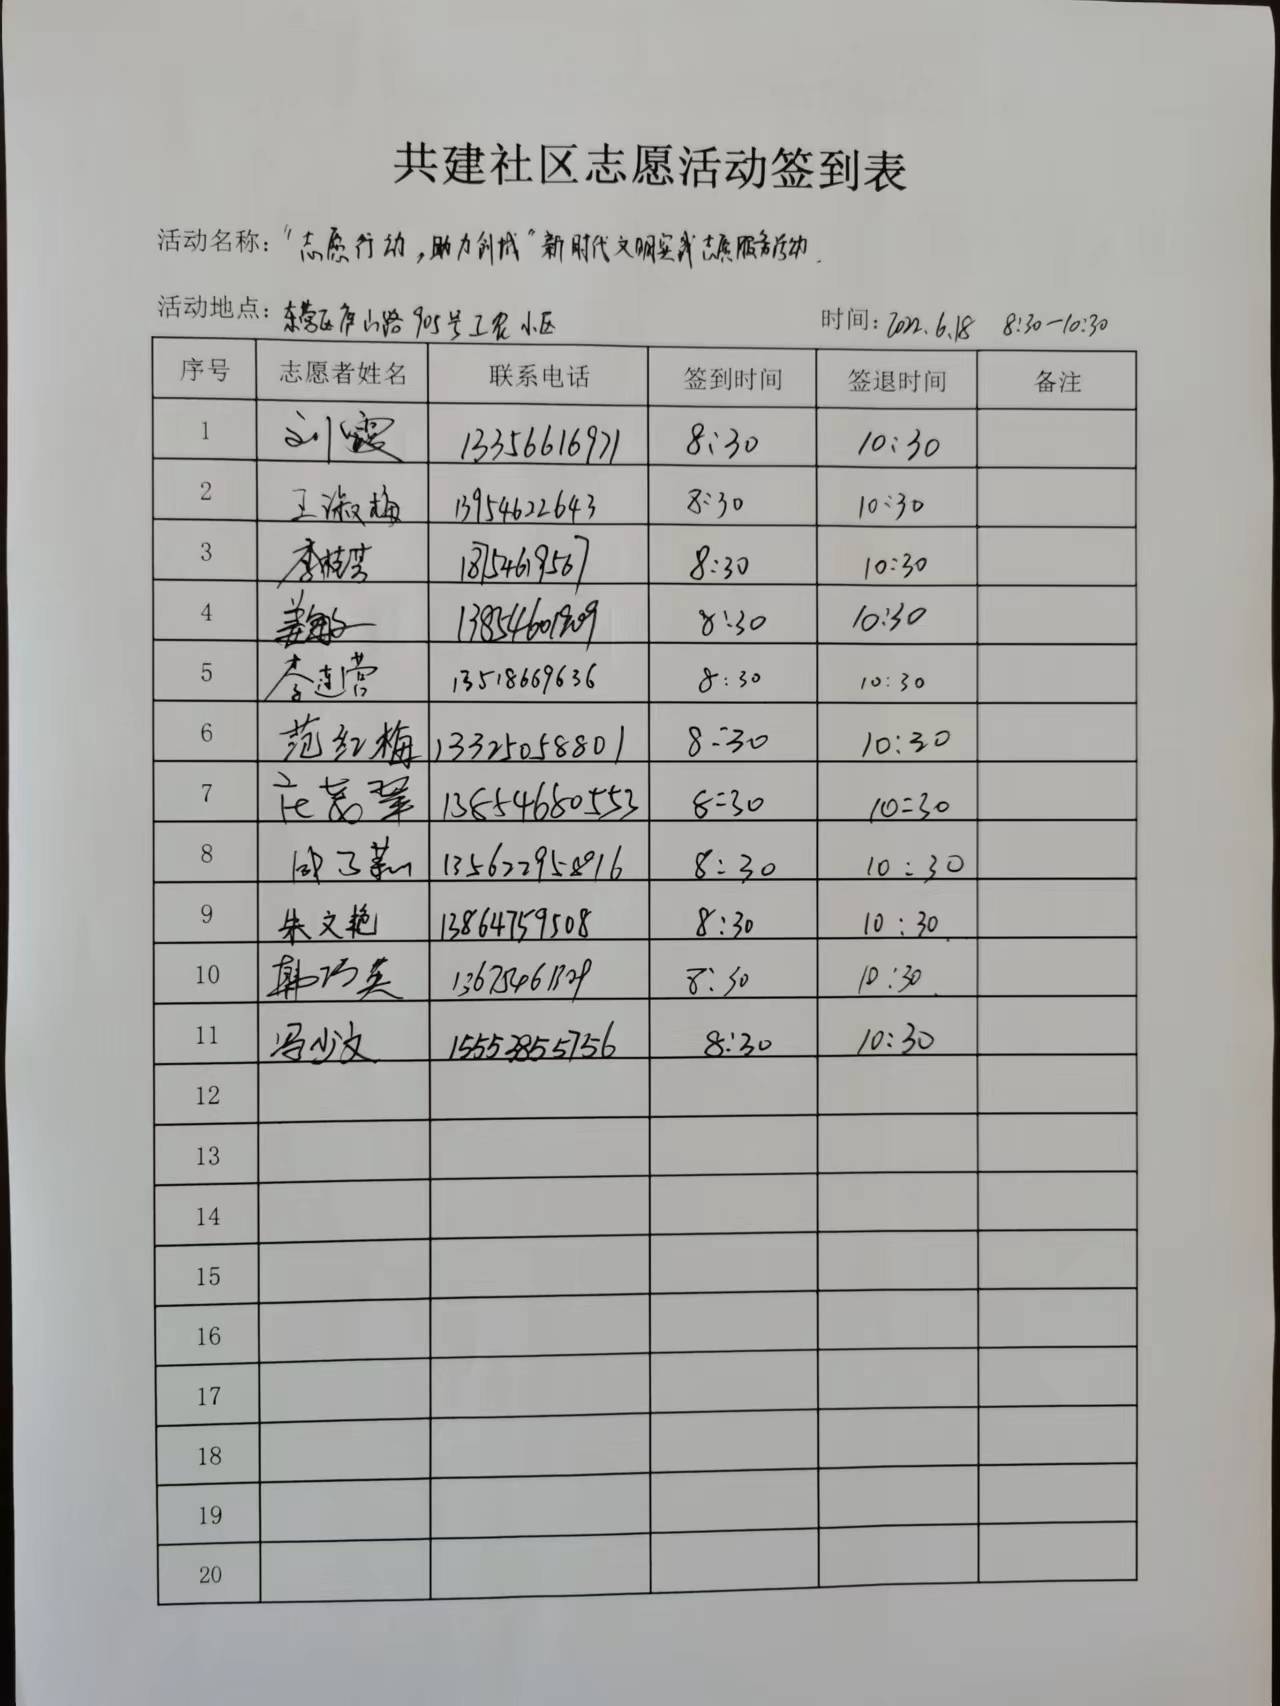 共建社区志愿活动签到表
活动名称："志愿行动，助力创城"新时代文明实践志愿服务活动.
活动地点：东营区庐山路905号工农小区 时间：2022.6.18 8:30-10:30
序号 志愿者姓名 联系电话 签到时间 签退时间 备注
1 刘霞 13356616971 8:30 10:30
2 王淑梅 13954622643 8:30 10:30
3 李晓芸 18754619567 8:30 10:30
4 姜敏 8:30 10:30
5 李连营 13518669636 8:30 10:30
6 范红梅 13325058801 8:30 10:30
7 13854680553 8:30 10:30
8 13562295816 8:30 10:30
9 朱文艳 13864759508 8:30 10:30
10 韩巧英 8:30 10:30
11 冯少文 15553855756 8:30 10:30
12
13
14
15
16
17
18
19
20